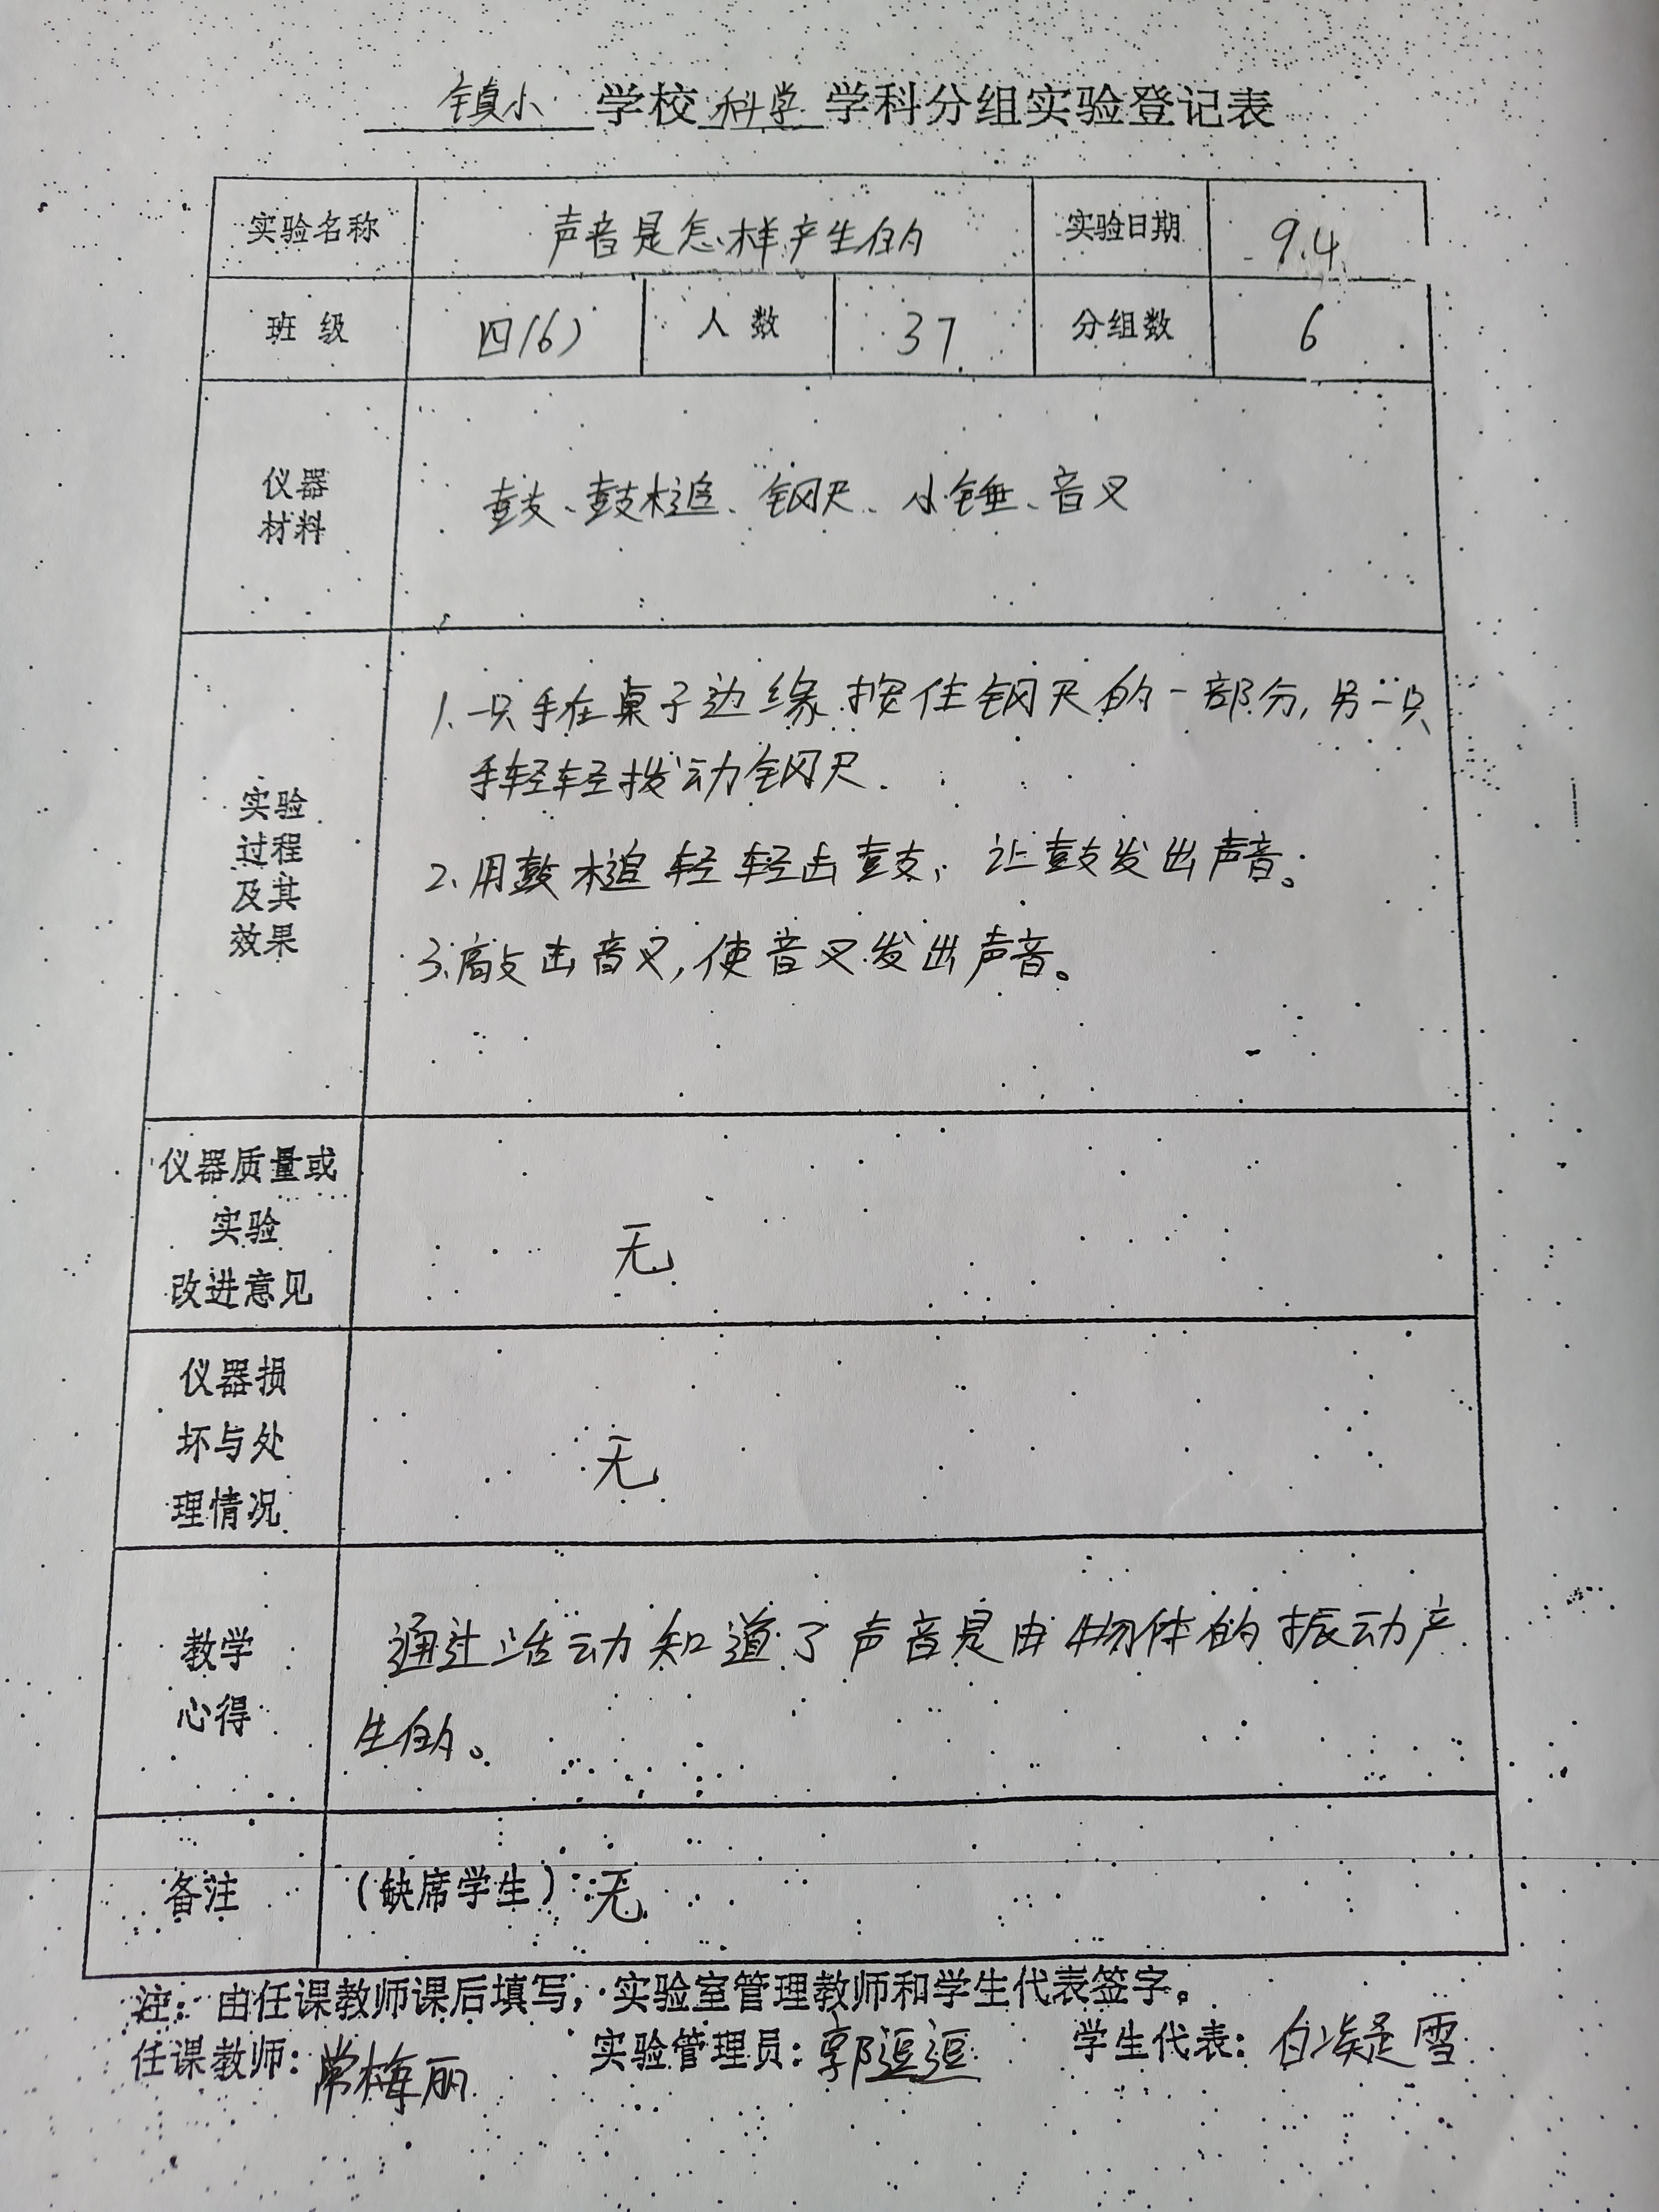 镇小 学校 科学 学科分组实验登记表
实验名称 声音是怎样产生的 实验日期 9.4
班 级 四(6) 人 数 37 分组数 6
仪器
材料
鼓、鼓槌、钢尺、小锤、音叉
实验
过程
及其
效果
1.一只手在桌子边缘按住钢尺的一部分,另一只
手轻轻拨动钢尺.
2.用鼓槌轻轻击鼓,让鼓发出声音。
3.敲击音叉,使音叉发出声音。
仪器质量或
实验
改进意见
无
仪器损
坏与处
理情况
无
教学
心得
通过活动知道了声音是由物体的振动产
生的。
备注 (缺席学生):无
注:由任课教师课后填写,实验室管理教师和学生代表签字。
任课教师:常梅丽 实验管理员:郭逗逗 学生代表:白凝雪